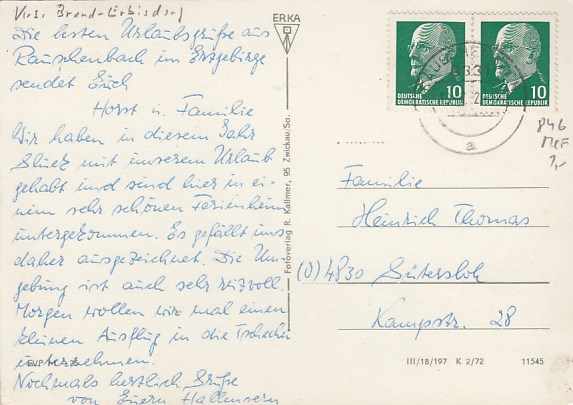 Krs. Brand-Erbisdorf
Die besten Urlaubsgrüße aus
Rauschenbach im Erzgebirge
sendet Euch
Horst u. Familie
Wir haben in diesem Jahr
Glück mit unserem Urlaub
gehabt und sind hier in ei-
nem sehr schönen Ferienheim
untergekommen. Es gefällt uns
daher ausgezeichnet. Die Um-
gebung ist auch sehr reizvoll.
Morgen wollen wir mal einen
kleinen Ausflug in die Tschechei
unternehmen.
Nochmals herzlich Grüße
von Euern Hallensern
EVP M
ERKA
Fotoverlag R. Kallmer, 95 Zwickau/Sa.
10 10
DEUTSCHE DEUTSCHE
DEMOKRATISCHE REPUBLIK DEMOKRATISCHE REPUBLIK
a
846
MeF
1,-
Familie
Heinrich Thomas
(0) 4830 Gütersloh
Kampstr. 28
III/18/197 K 2/72 11545